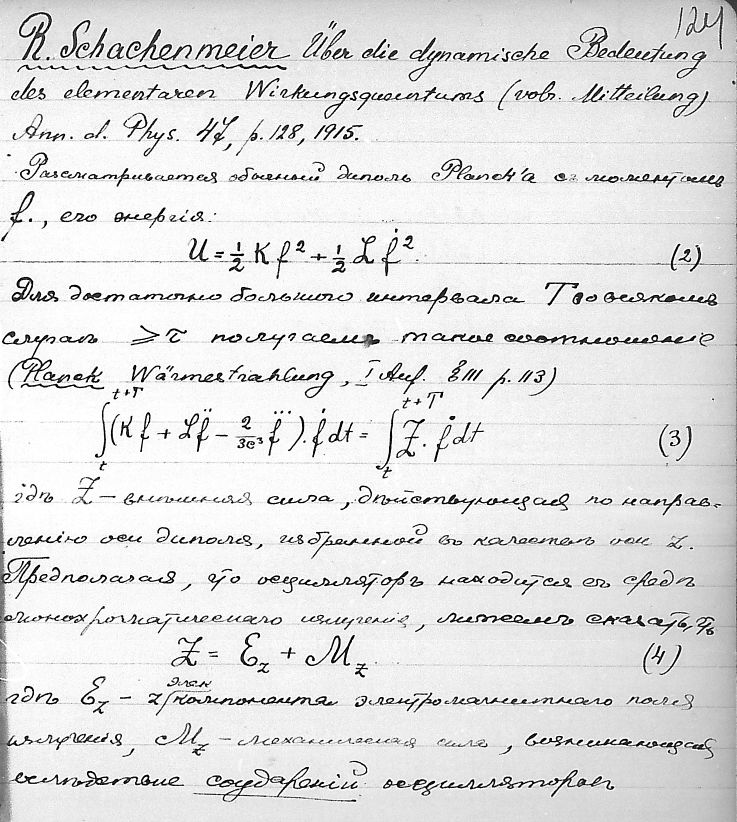 124
R. Schachenmeier Über die dynamische Bedeutung
des elementaren Wirkungsquantums (vobr. Mitteilung)
Ann. d. Phys. 47, p. 128, 1915.
Разсматривается обычный диполь Planck'a съ моментомъ
f., его энергія:
U = ½ K f² + ½ L ḟ² (2)
Для достаточно большого интервала T во всякомъ
случаѣ ⩾ τ получаемъ такое соотношеніе
(Planck Wärmestrahlung, I Auf. § III p. 113)
∫ₜᵗ⁺ᵀ (K f + L f̈ − 2/3c³ f⃛) . ḟ dt = ∫ₜᵗ⁺ᵀ Z . ḟ dt (3)
гдѣ Z – внѣшняя сила, дѣйствующая по направ-
ленію оси диполя, избранной въ качествѣ оси z.
Предполагая, что осцилляторъ находится въ средѣ
монохроматическаго излученія, можемъ сказать, чтѣ
Z = ℰ_z + ℳ_z (4)
гдѣ ℰ_z – z элек компонента электромагнитнаго поля
излученія, ℳ_z – механическая сила, возникающая
вслѣдствіе соудареній осцилляторовъ